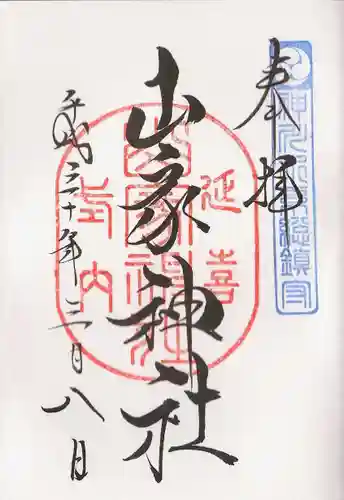 奉拝
山家神社
平成三十年三月八日
延喜
山家神社
式内